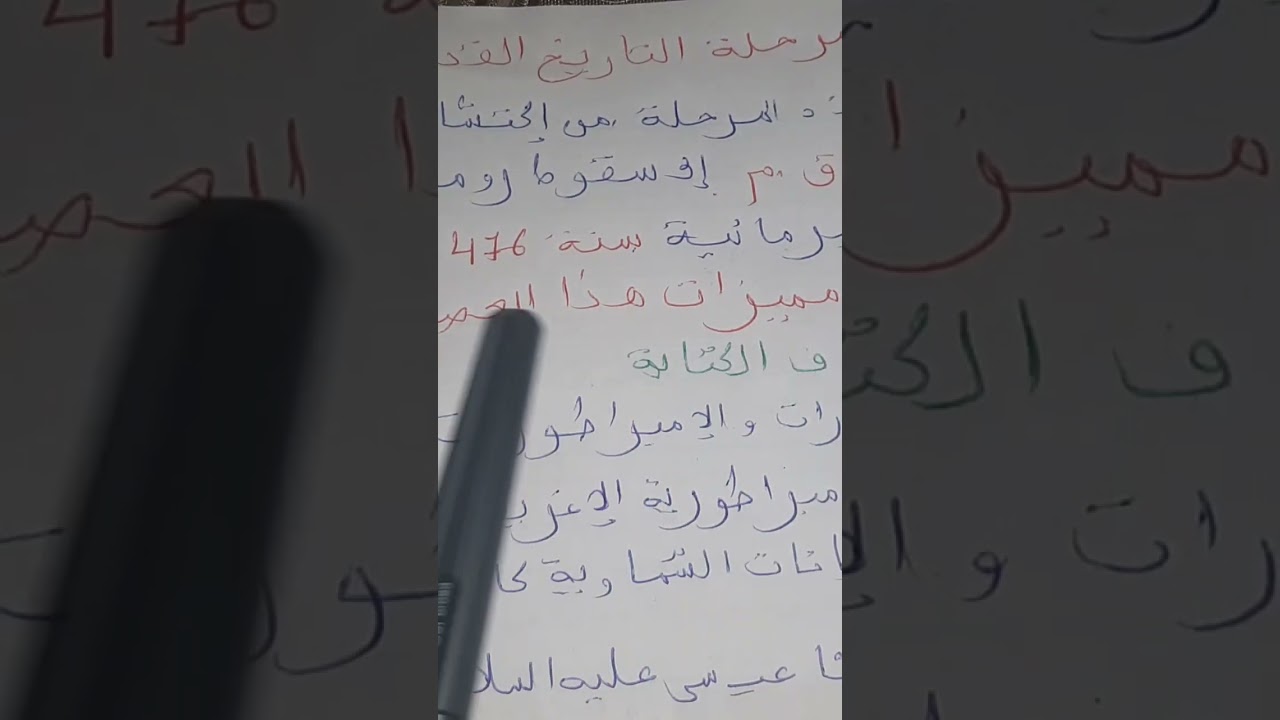 مرحلة التاريخ القد
المرحلة من إكتشا
ق.م إلى سقوط روم
سنة 476
مميزات هذا العص
ف الكتابة
رات و الإمبراطور
مبراطورية الإغري
انات السماوية كا
عيسى عليه السلا